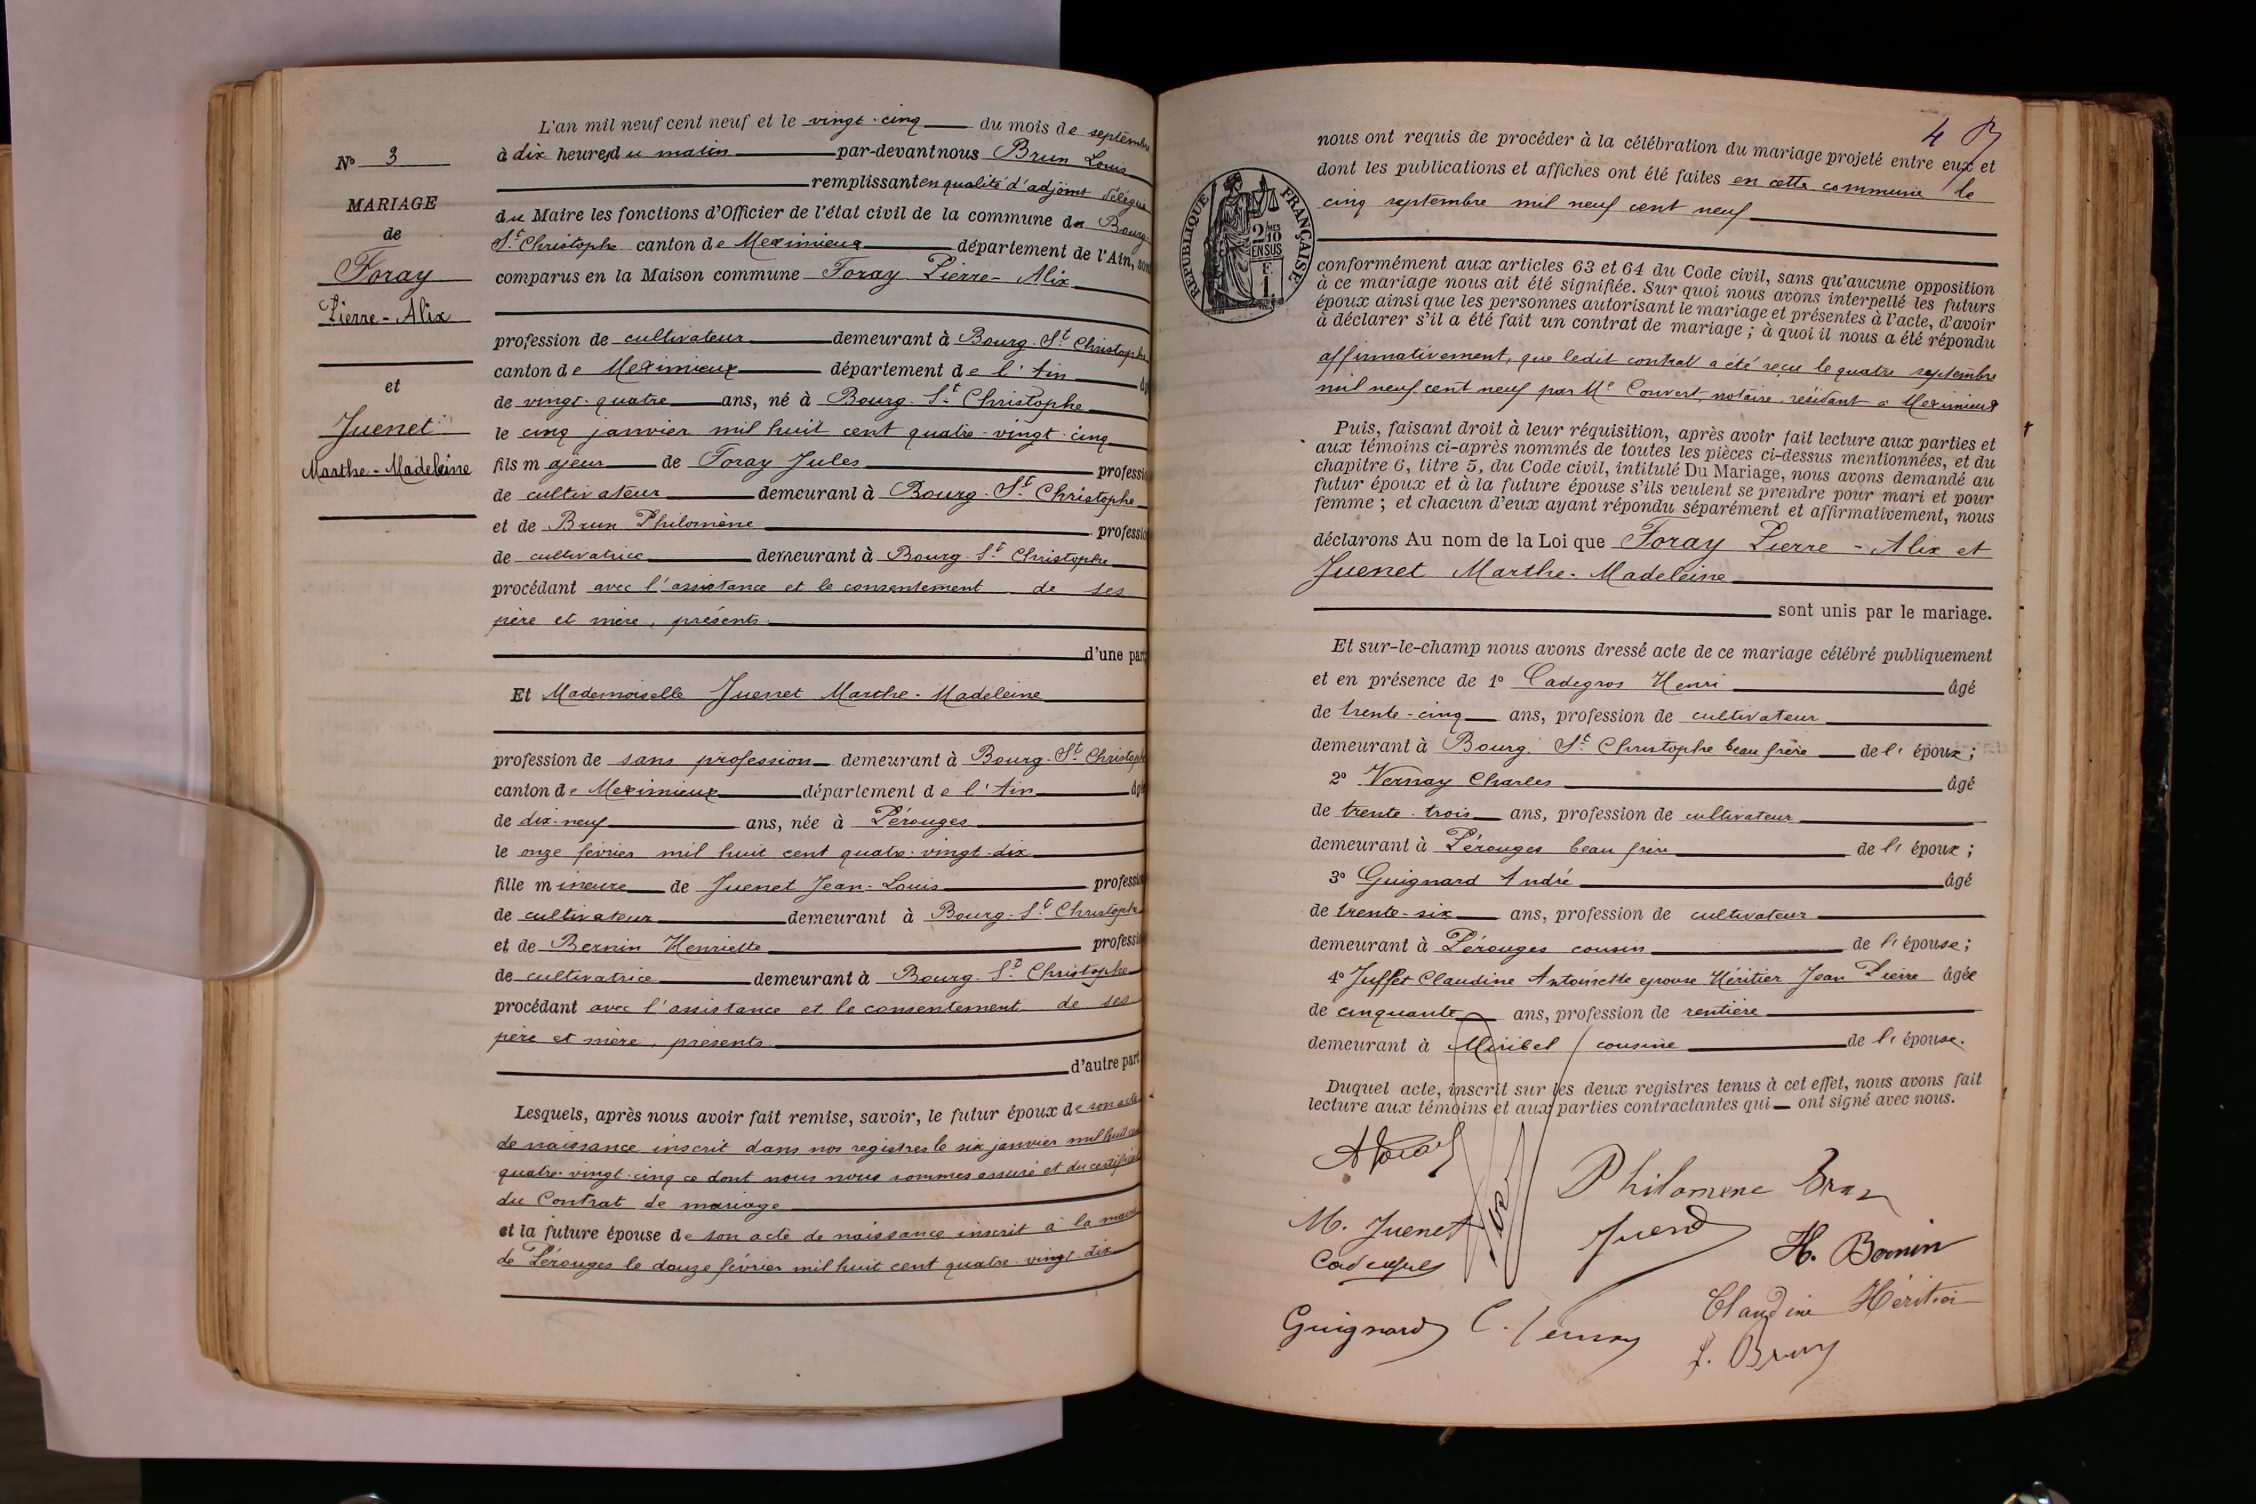 N° 3
MARIAGE
de
Foray
Pierre-Alix
et
Juenet
Marthe-Madeleine
L'an mil neuf cent neuf et le vingt-cinq du mois de septembre
à dix heures du matin par-devant nous Brun Louis
remplissant en qualité d'adjoint délégué
du Maire les fonctions d'Officier de l'état civil de la commune de Bourg
St Christophe canton de Meximieux département de l'Ain, sont
comparus en la Maison commune Foray Pierre-Alix
profession de cultivateur demeurant à Bourg-St Christophe
canton de Meximieux département de l'Ain âgé
de vingt-quatre ans, né à Bourg-St Christophe
le cinq janvier mil huit cent quatre-vingt-cinq
fils majeur de Foray Jules profession
de cultivateur demeurant à Bourg-St Christophe
et de Brun Philomène profession
de cultivatrice demeurant à Bourg-St Christophe
procédant avec l'assistance et le consentement de ses
père et mère, présents
d'une part
Et Mademoiselle Juenet Marthe-Madeleine
profession de sans profession demeurant à Bourg-St Christophe
canton de Meximieux département de l'Ain âgée
de dix-neuf ans, née à Pérouges
le onze février mil huit cent quatre-vingt-dix
fille mineure de Juenet Jean-Louis profession
de cultivateur demeurant à Bourg-St Christophe
et de Bernin Henriette profession
de cultivatrice demeurant à Bourg-St Christophe
procédant avec l'assistance et le consentement de ses
père et mère, présents
d'autre part
Lesquels, après nous avoir fait remise, savoir, le futur époux de son acte
de naissance inscrit dans nos registres le six janvier mil huit cent
quatre-vingt-cinq ce dont nous nous sommes assuré et du certificat
du Contrat de mariage
et la future épouse de son acte de naissance inscrit à la mairie
de Pérouges le douze février mil huit cent quatre-vingt dix
4
RÉPUBLIQUE FRANÇAISE
2/10MES
EN SUS
F.
1.
nous ont requis de procéder à la célébration du mariage projeté entre eux et
dont les publications et affiches ont été faites en cette commune le
cinq septembre mil neuf cent neuf
conformément aux articles 63 et 64 du Code civil, sans qu'aucune opposition
à ce mariage nous ait été signifiée. Sur quoi nous avons interpellé les futurs
époux ainsi que les personnes autorisant le mariage et présentes à l'acte, d'avoir
à déclarer s'il a été fait un contrat de mariage ; à quoi il nous a été répondu
affirmativement, que ledit contrat a été reçu le quatre septembre
mil neuf cent neuf par Me Convert, notaire, résidant à Meximieux
Puis, faisant droit à leur réquisition, après avoir fait lecture aux parties et
aux témoins ci-après nommés de toutes les pièces ci-dessus mentionnées, et du
chapitre 6, titre 5, du Code civil, intitulé Du Mariage, nous avons demandé au
futur époux et à la future épouse s'ils veulent se prendre pour mari et pour
femme ; et chacun d'eux ayant répondu séparément et affirmativement, nous
déclarons Au nom de la Loi que Foray Pierre-Alix et
Juenet Marthe-Madeleine
sont unis par le mariage.
Et sur-le-champ nous avons dressé acte de ce mariage célébré publiquement
et en présence de 1° Cadegros Henri âgé
de trente-cinq ans, profession de cultivateur
demeurant à Bourg-St Christophe beau frère de l'époux ;
2° Vernay Charles âgé
de trente-trois ans, profession de cultivateur
demeurant à Pérouges beau frère de l'époux ;
3° Guignard André âgé
de trente-six ans, profession de cultivateur
demeurant à Pérouges cousin de l'épouse ;
4° Juffet Claudine Antoinette épouse Héritier Jean Pierre âgée
de cinquante ans, profession de rentière
demeurant à Miribel cousine de l'épouse.
Duquel acte, inscrit sur les deux registres tenus à cet effet, nous avons fait
lecture aux témoins et aux parties contractantes qui ont signé avec nous.
A Foray
Philomène Brun
M. Juenet
Juenet
H. Bernin
Cadegros
Claudine Héritier
Guignard
C. Vernay
L. Brun